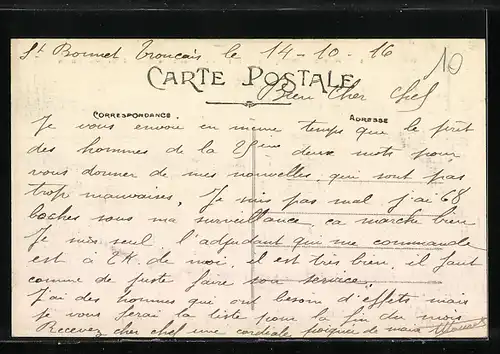 St Bonnet Tronçais le 14-10-16
10
CARTE POSTALE
Bien Cher Chef
CORRESPONDANCE
ADRESSE
Je vous envoie en même temps que le prêt
des hommes de la 25ème deux mots pour
vous donner de mes nouvelles qui sont pas
trop mauvaises. Je suis pas mal j'ai 68
boches sous ma surveillance ça marche bien
Je suis seul l'adjudant qui me commande
est à 2K de moi, il est très bien, il faut
comme de juste faire son service.
J'ai des hommes qui ont besoin d'effets mais
je vous ferai la liste pour la fin du mois
Recevez cher chef une cordiale poignée de main